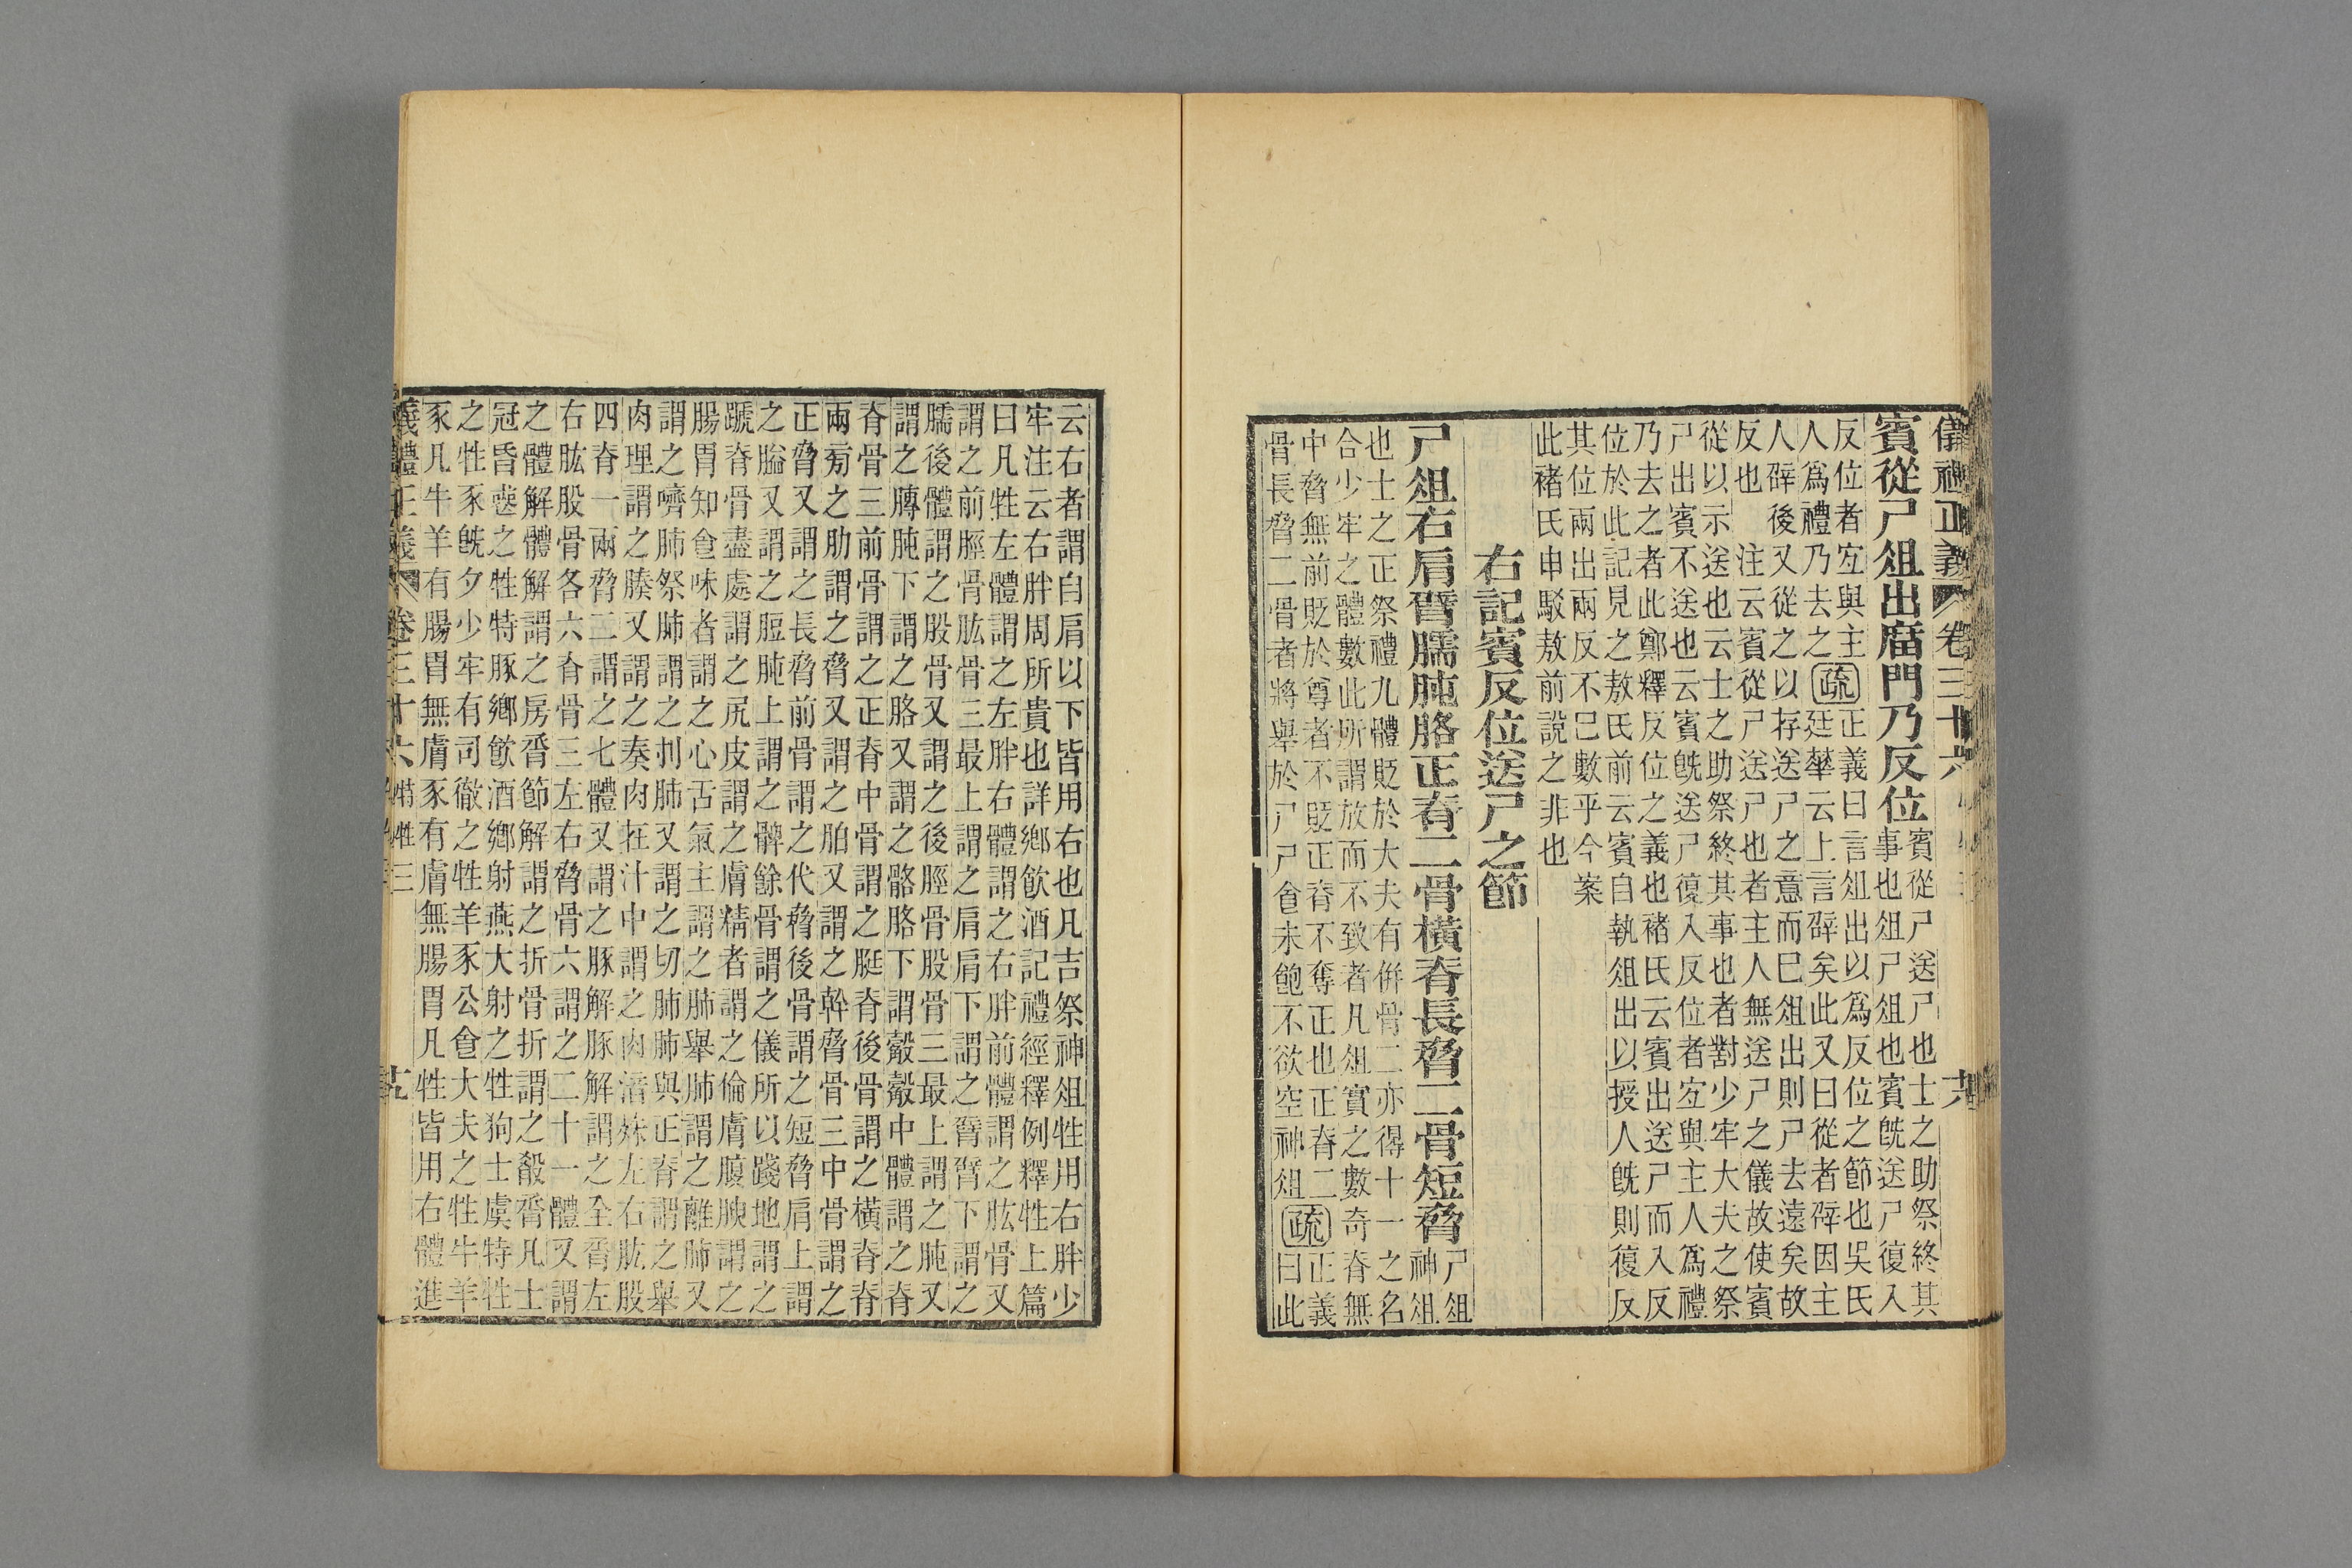 儀禮正義 卷三十六 十六
賓從尸俎出庿門乃反位
賓從尸送尸也士之助祭終其
事也俎尸俎也賓旣送尸復入
反位者宐與主
人爲禮乃去之
疏
正義曰言俎出以爲反位之節也吳氏
廷華云上言辟矣此又曰從者辟因主
人辟後又從之以存送尸之意而巳俎出則尸去遠矣故
反也 注云賓從尸送尸也者主人無送尸之儀故使賓
從以示送也云士之助祭終其事也者對少牢大夫之祭
尸出賓不送也云賓旣送尸復入反位者宐與主人爲禮
乃去之者此鄭釋反位之義也褚氏云賓出送尸而入反
位於此記見之敖氏前云賓自執俎出以授人旣則復反
其位兩出兩反不巳數乎今案
此褚氏申駁敖前說之非也
右記賓反位送尸之節
尸俎右肩臂臑肫胳正脊二骨橫脊長脅二骨短脅
尸俎
神俎
也士之正祭禮九體貶於大夫有併骨二亦得十一之名
合少牢之體數此所謂放而不致者凡俎實之數奇脊無
中脅無前貶於尊者不貶正脊不奪正也正脊二
骨長脅二骨者將舉於尸尸食未飽不欲空神俎
疏
正義
曰此
云右者謂自肩以下皆用右也凡吉祭神俎牲用右胖少
牢注云右胖周所貴也詳鄉飮酒記禮經釋例釋牲上篇
曰凡牲左體謂之左胖右體謂之右胖前體謂之肱骨又
謂之前脛骨肱骨三最上謂之肩肩下謂之臂臂下謂之
臑後體謂之股骨又謂之後脛骨股骨三最上謂之肫又
謂之膞肫下謂之胳又謂之骼胳下謂觳觳中體謂之脊
脊骨三前骨謂之正脊中骨謂之脡脊後骨謂之橫脊脊
兩旁之肋謂之脅又謂之胉又謂之幹脅骨三中骨謂之
正脅又謂之長脅前骨謂之代脅後骨謂之短脅肩上謂
之膉又謂之脰肫上謂之髀餘骨謂之儀所以踐地謂之
蹏脊骨盡處謂之尻皮謂之膚精者謂之倫膚腹腴謂之
腸胃知食味者謂之心舌氣主謂之肺舉肺謂之離肺又
謂之嚌肺祭肺謂之刌肺又謂之切肺肺與正脊謂之舉
肉理謂之腠又謂之奏肉在汁中謂之肉湆殊左右肱股
四脊一兩脅二謂之七體又謂之豚解豚解謂之全脀左
右肱股骨各六脊骨三左右脅骨六謂之二十一體又謂
之體解體解謂之房脀節解謂之折骨折謂之殽脀凡士
冠昏喪之牲特豚鄉飮酒鄉射燕大射之牲狗士虞特牲
之牲豕旣夕少牢有司徹之牲羊豕公食大夫之牲牛羊
豕凡牛羊有腸胃無膚豕有膚無腸胃凡牲皆用右體進
儀禮正義 卷三十六 特牲三